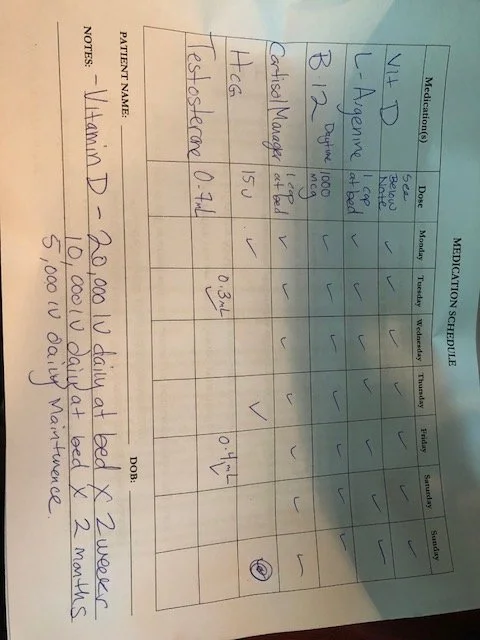 MEDICATION SCHEDULE
Medication(s) Dose Monday Tuesday Wednesday Thursday Friday Saturday Sunday
Vit D See Below Note ✓ ✓ ✓ ✓ ✓ ✓ ✓
L-Argenine 1 cap at bed ✓ ✓ ✓ ✓ ✓ ✓ ✓
B-12 Daytime 1000 mcg ✓ ✓ ✓ ✓ ✓ ✓ ✓
Cortisol Manager 1 cap at bed ✓ ✓ ✓ ✓ ✓ ✓ ✓
HcG 15u ✓ ✓
Testosterone 0.7mL 0.3mL ✓ 0.4mL ✓
PATIENT NAME: DOB:
NOTES: - Vitamin D - 20,000 IU daily at bed x 2 weeks
10,000 IU daily at bed x 2 months
5,000 IU daily Maintenence.